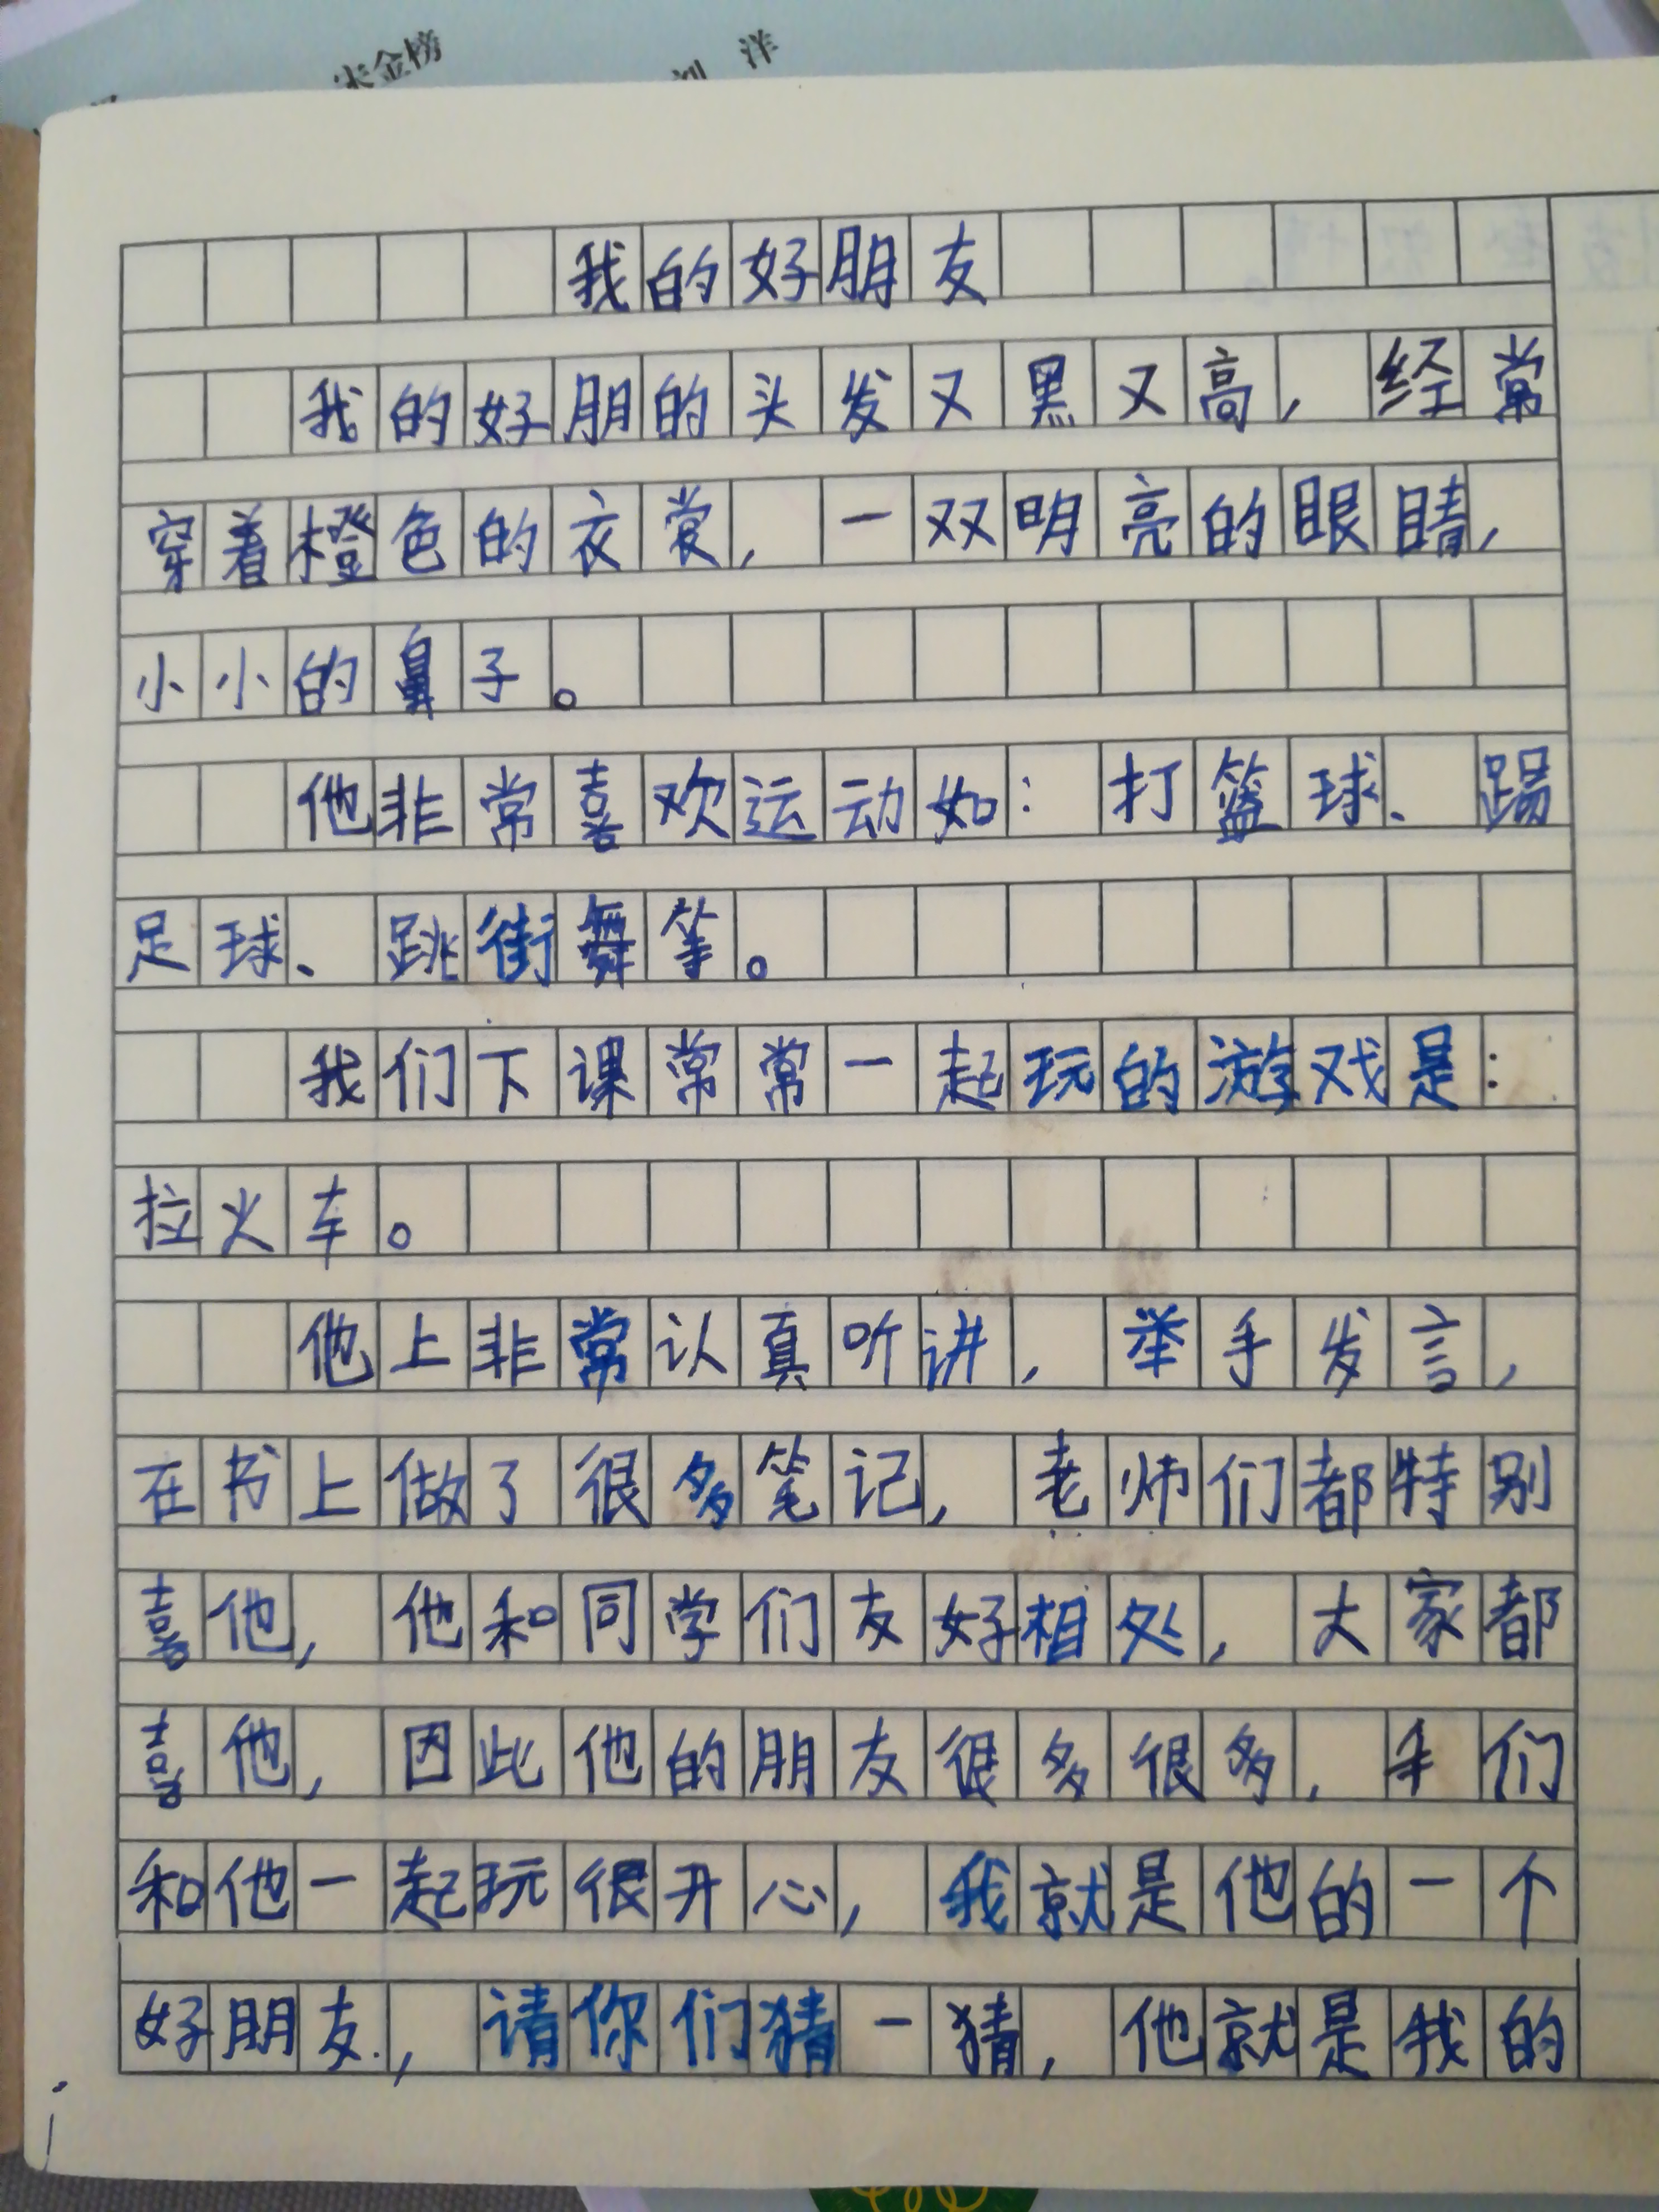 宋金榜
刘 洋
我的好朋友
我的好朋的头发又黑又高，经常
穿着橙色的衣裳，一双明亮的眼睛，
小小的鼻子。
他非常喜欢运动如：打篮球、踢
足球、跳街舞等。
我们下课常常一起玩的游戏是：
拉火车。
他上非常认真听讲，举手发言，
在书上做了很多笔记，老师们都特别
喜他，他和同学们友好相处，大家都
喜他，因此他的朋友很多很多，们
和他一起玩很开心，我就是他的一个
好朋友.，请你们猜一猜，他就是我的